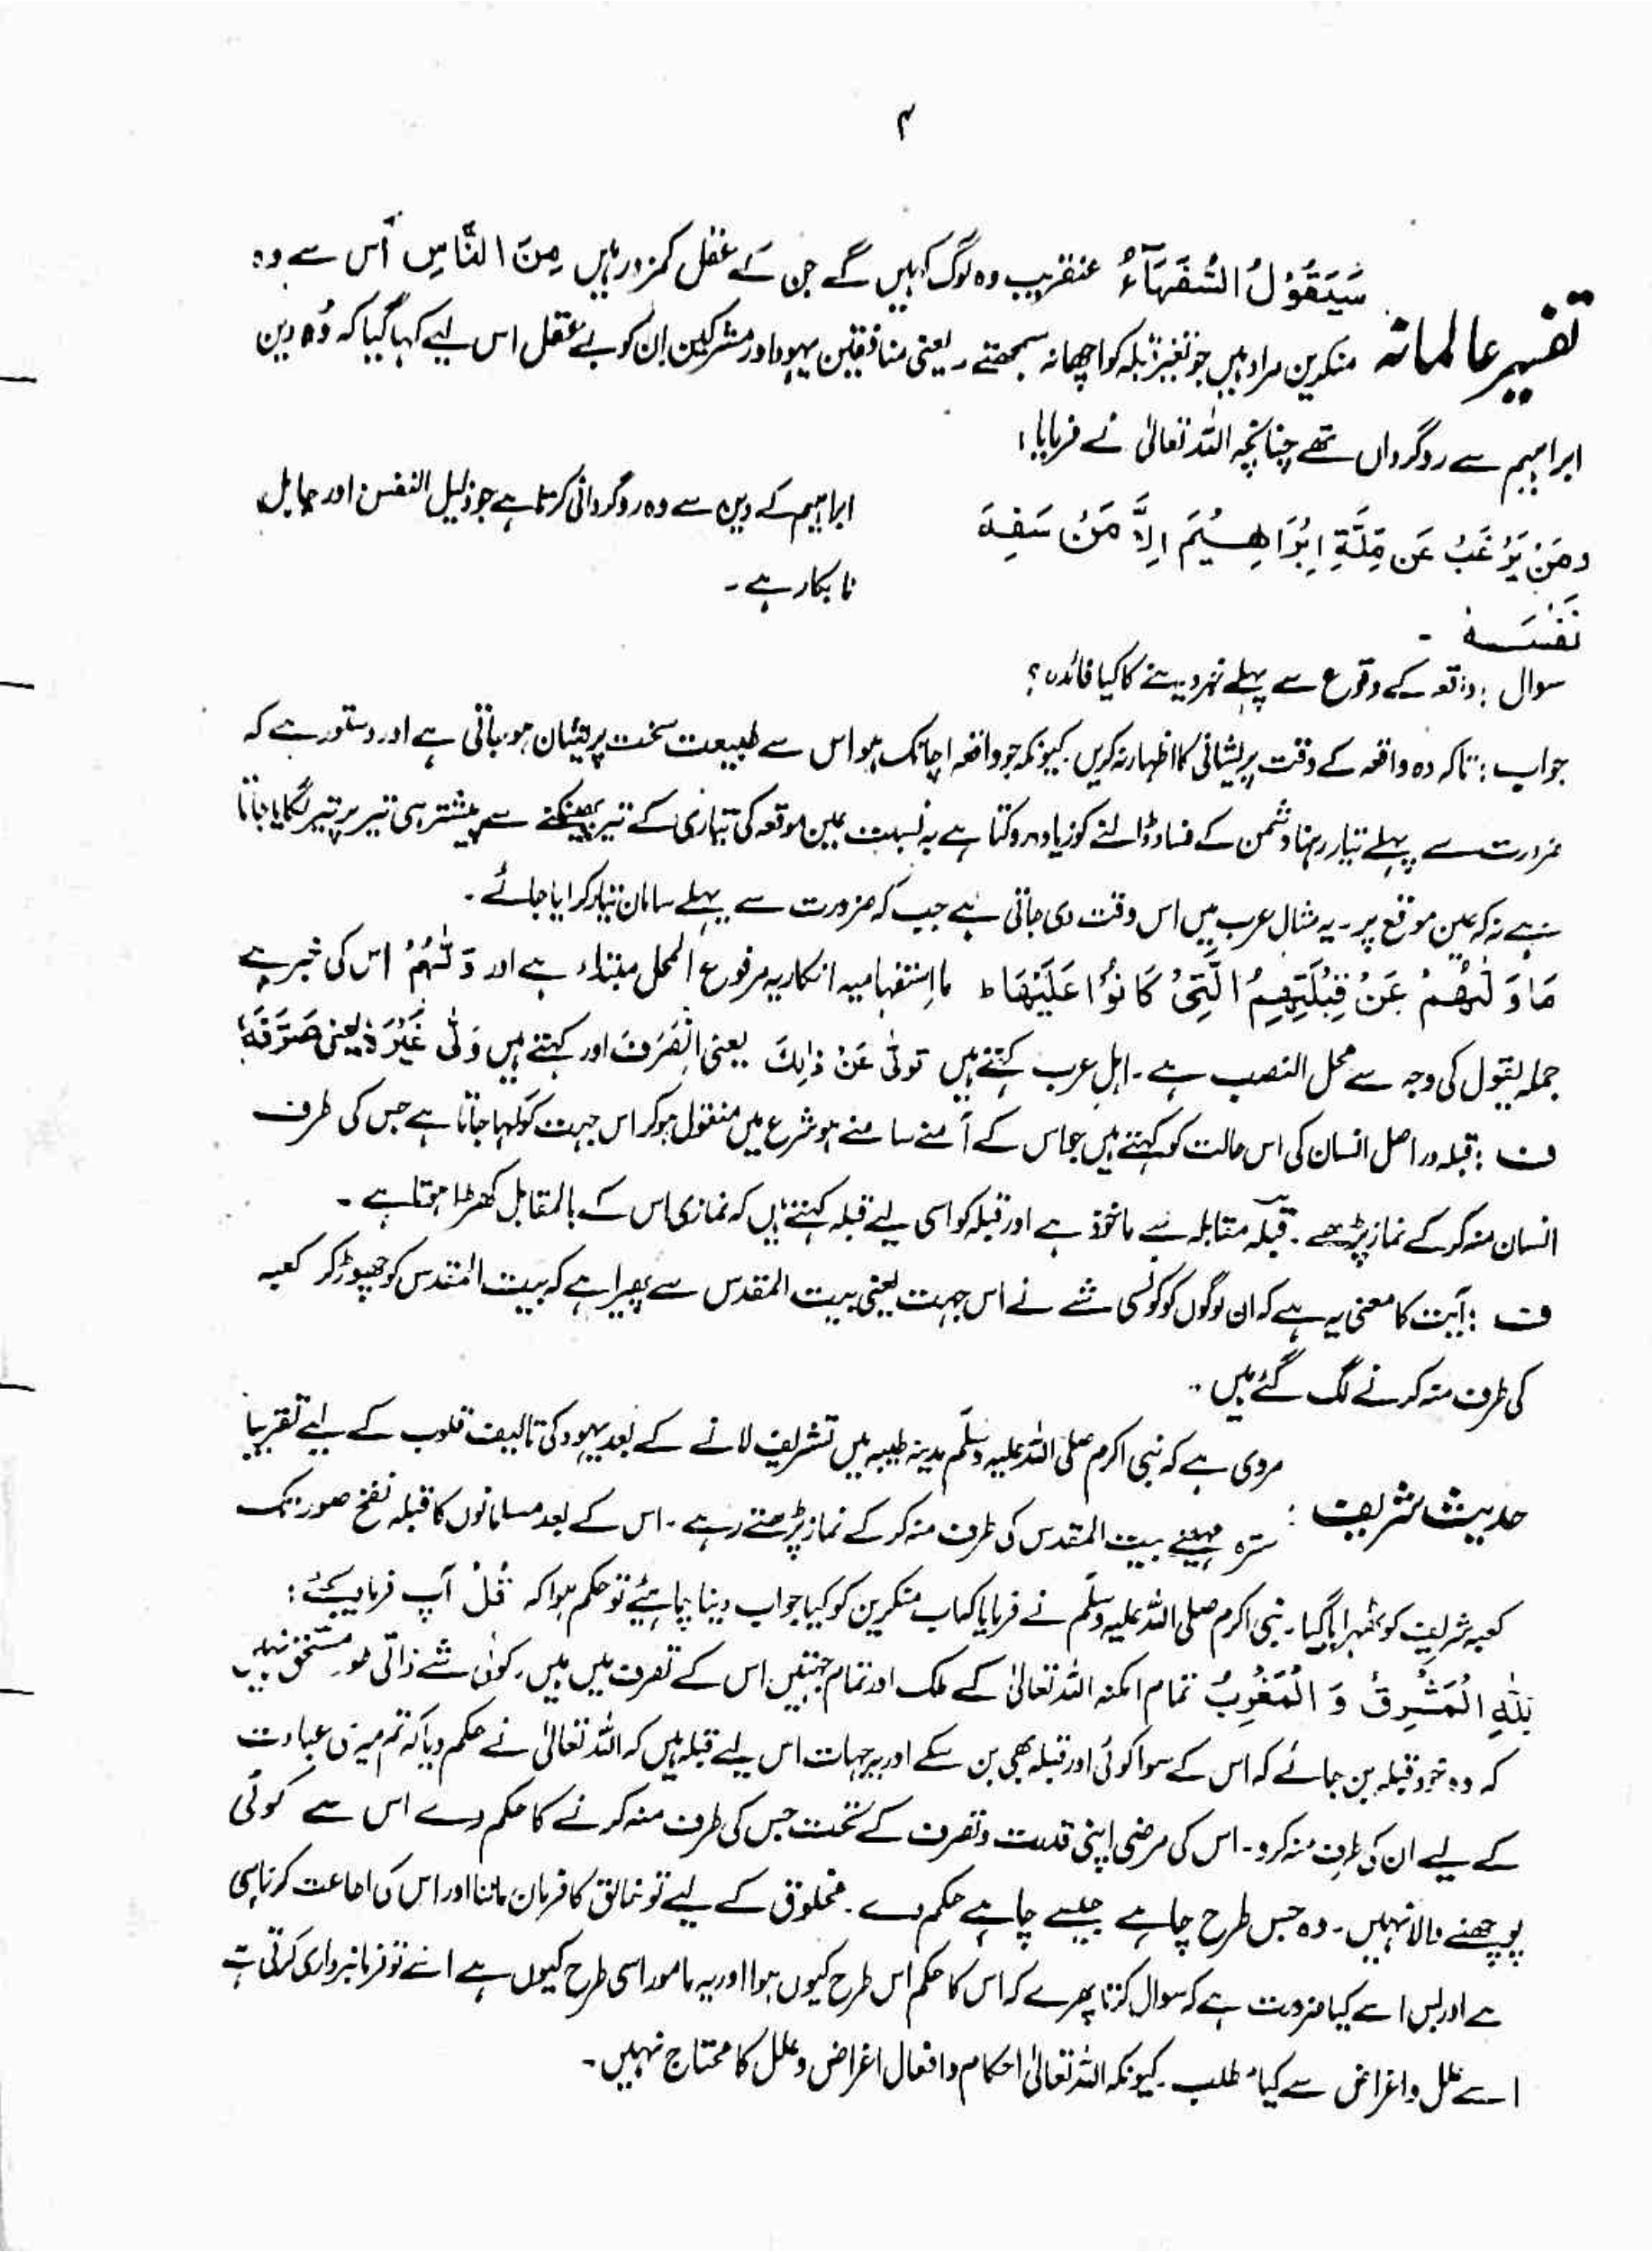 ۴
سَيَقُوْلُ السُّفَهَآءُ عنقریب وہ لوگ کہیں گے جن کے عقل کمزور ہیں مِنَ النَّاسِ اُس سے وہ
تفسیر عالمانہ
منکرین مراد ہیں جو تغیر قبلہ کو اچھا نہ سمجھتے ۔ یعنی منافقین یہود اور مشرکین ان کو بے عقل اس لیے کہا گیا کہ وُہ دین
ابراہیم سے روگرداں تھے چنانچہ اللہ تعالیٰ نے فرمایا :
ومَنْ يَرْغَبُ عَن مِّلَّةِ اِبْرَاهِيْمَ اِلاَّ مَنْ سَفِهَ
نَفْسَهٗ ۔
ابراہیم کے دین سے وہ روگردانی کرتا ہے جو ذلیل النفس اور جاہل
نابکار ہے ۔
سوال : واقعہ کے وقوع سے پہلے خبر دینے کا کیا فائدہ ؟
جواب : تاکہ وہ واقعہ کے وقت پریشانی کا اظہار نہ کریں ۔ کیونکہ جو واقعہ اچانک ہو اس سے طبیعت سخت پریشان ہو جاتی ہے اور دستور ہے کہ
ضرورت سے پہلے تیار رہنا دشمن کے فساد ڈالنے کو زیادہ روکتا ہے بہ نسبت عین موقعہ کی تیاری کے تیر پھینکنے سے پیشتر ہی تیر پر تیر لگایا جاتا
ہے نہ کہ عین موقع پر ۔ یہ مثال عرب میں اس وقت دی جاتی ہے جب کہ ضرورت سے پہلے سامان تیار کرایا جائے ۔
مَا وَلّٰىهُمْ عَنْ قِبْلَتِهِمُ الَّتِىْ كَانُوْا عَلَيْهَا ط ما استفہامیہ انکاریہ مرفوع المحل مبتداء ہے اور وَلّٰهُمْ اس کی خبر ہے
جملہ یقول کی وجہ سے محل النصب ہے ۔ اہل عرب کہتے ہیں تولّٰی عَنْ ذٰلِکَ یعنی اِنْصَرَفَ اور کہتے ہیں وَلّٰی غَيْرَهٗ یعنی صَرَّفَهٗ
ف : قبلہ دراصل انسان کی اس حالت کو کہتے ہیں جو اس کے آمنے سامنے ہو شرع میں منقول ہو کر اس جہت کو کہا جاتا ہے جس کی طرف
انسان منہ کر کے نماز پڑھے ۔ قبلہ مقابلہ سے ماخوذ ہے اور قبلہ کو اسی لیے قبلہ کہتے ہیں کہ نمازی اس کے بالمقابل کھڑا ہوتا ہے ۔
ف : آیت کا معنی یہ ہے کہ ان لوگوں کو کونسی شے نے اس جہت یعنی بیت المقدس سے پھیرا ہے کہ بیت المقدس کو چھوڑ کر کعبہ
کی طرف منہ کرنے لگ گئے ہیں ۔
مروی ہے کہ نبی اکرم صلی اللہ علیہ وسلّم مدینہ طیبہ میں تشریف لانے کے بعد یہود کی تالیف قلوب کے لیے تقریباً
حدیث شریف :
سترہ مہینے بیت المقدس کی طرف منہ کر کے نماز پڑھتے رہے ۔ اس کے بعد مسلمانوں کا قبلہ نفخ صور تک
کعبہ شریف کو ٹھہرایا گیا ۔ نبی اکرم صلی اللہ علیہ وسلّم نے فرمایا کہ اب منکرین کو کیا جواب دینا چاہئیے تو حکم ہوا کہ قُلْ آپ فرمایئے :
لِلّٰهِ الْمَشْرِقُ وَ الْمَغْرِبُ تمام امکنہ اللہ تعالیٰ کے ملک اور تمام جہتیں اس کے تصرف میں ہیں ۔ کوئی شے ذاتی طور مستحق نہیں
کہ وہ خود قبلہ بن جائے کہ اس کے سوا کوئی اور قبلہ بھی بن سکے اور یہ جہات اس لیے قبلہ ہیں کہ اللہ تعالیٰ نے حکم دیا کہ تم میری عبادت
کے لیے ان کی طرف منہ کرو ۔ اس کی مرضی اپنی قدرت و تصرف کے تحت جس کی طرف منہ کرنے کا حکم دے اس سے کوئی
پوچھنے والا نہیں ۔ وہ جس طرح چاہے جیسے چاہے حکم دے ۔ مخلوق کے لیے تو خالق کا فرمان ماننا اور اس کی اطاعت کرنا ہی
ہے اور بس اسے کیا ضرورت ہے کہ سوال کرتا پھرے کہ اس کا حکم اس طرح کیوں ہوا اور یہ مامور اسی طرح کیوں ہے اسے تو فرمانبرداری کرنی ہے
اسے علل و اغراض سے کیا مطلب ۔ کیونکہ اللہ تعالیٰ احکام و افعال اغراض و علل کا محتاج نہیں ۔